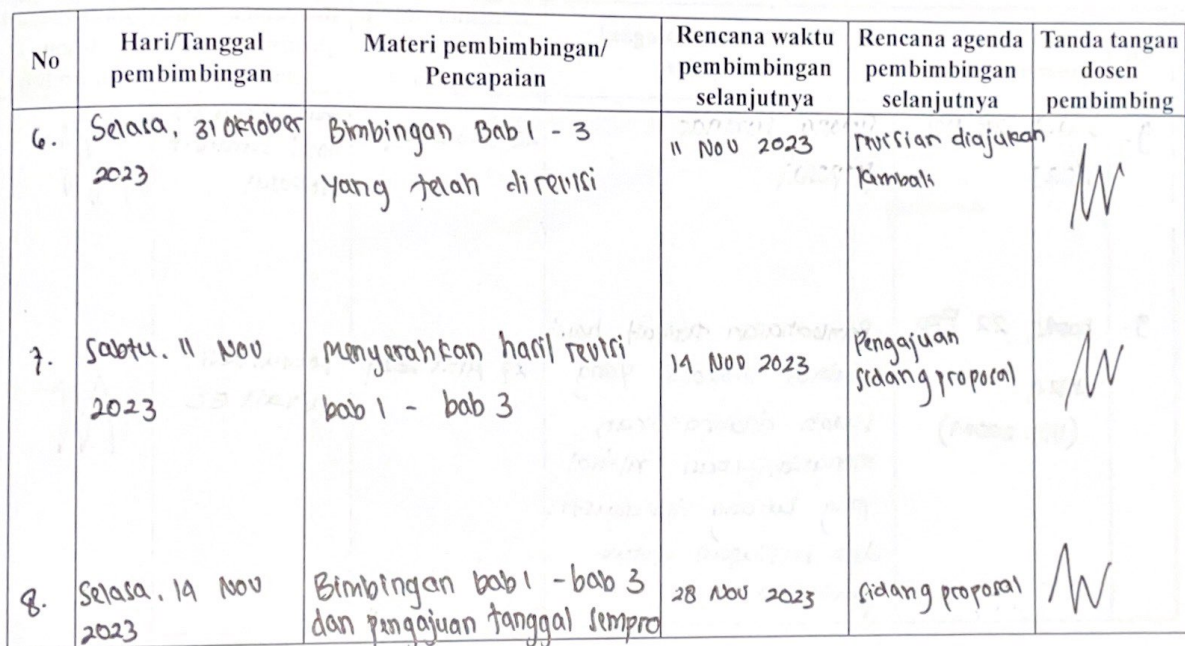 No
Hari/Tanggal
pembimbingan
Materi pembimbingan/
Pencapaian
Rencana waktu
pembimbingan
selanjutnya
Rencana agenda
pembimbingan
selanjutnya
Tanda tangan
dosen
pembimbing
6.
Selasa, 31 Oktober
2023
Bimbingan Bab 1 - 3
yang telah direvisi
11 Nov 2023
revisian diajukan
kembali
7.
Sabtu, 11 Nov
2023
Menyerahkan hasil revisi
bab 1 - bab 3
14 Nov 2023
Pengajuan
sidang proposal
8.
Selasa, 14 Nov
2023
Bimbingan bab 1 - bab 3
dan pengajuan tanggal sempro
28 Nov 2023
Sidang proposal